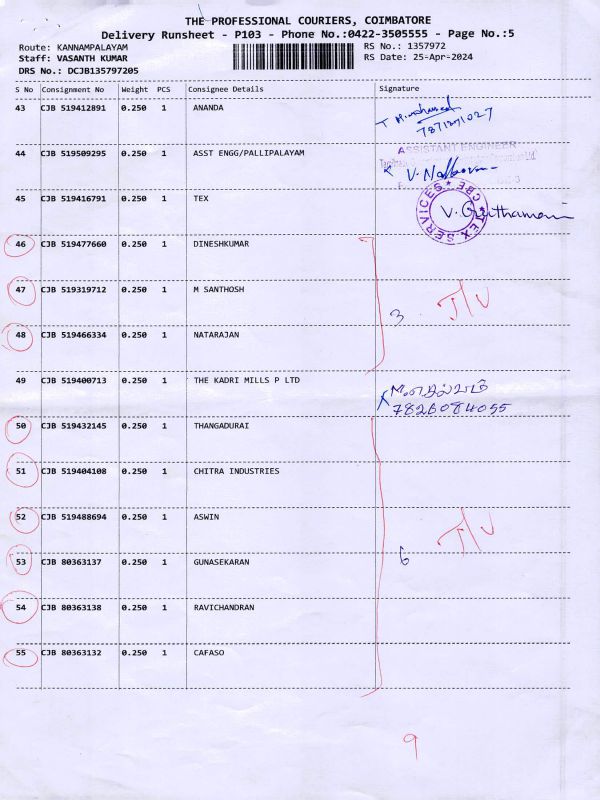 THE PROFESSIONAL COURIERS, COIMBATORE
Delivery Runsheet - P103 - Phone No.:0422-3505555 - Page No.:5
Route: KANNAMPALAYAM RS No.: 1357972
Staff: VASANTH KUMAR RS Date: 25-Apr-2024
DRS No.: DCJB135797205
S No Consignment No Weight PCS Consignee Details Signature
43 CJB 519412891 0.250 1 ANANDA
44 CJB 519509295 0.250 1 ASST ENGG/PALLIPALAYAM ASSISTANT ENGINEER
45 CJB 519416791 0.250 1 TEX TEX SERVICES * CBE *
46 CJB 519477660 0.250 1 DINESHKUMAR
47 CJB 519319712 0.250 1 M SANTHOSH
3 T/V
48 CJB 519466334 0.250 1 NATARAJAN
49 CJB 519400713 0.250 1 THE KADRI MILLS P LTD
7826084055
50 CJB 519432145 0.250 1 THANGADURAI
51 CJB 519404108 0.250 1 CHITRA INDUSTRIES
52 CJB 519488694 0.250 1 ASWIN
6 T/V
53 CJB 80363137 0.250 1 GUNASEKARAN
54 CJB 80363138 0.250 1 RAVICHANDRAN
55 CJB 80363132 0.250 1 CAFASO
9